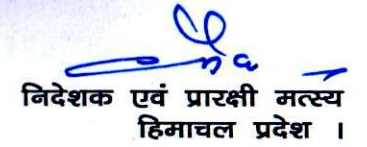 निदेशक एवं प्रारक्षी मत्स्य
हिमाचल प्रदेश ।